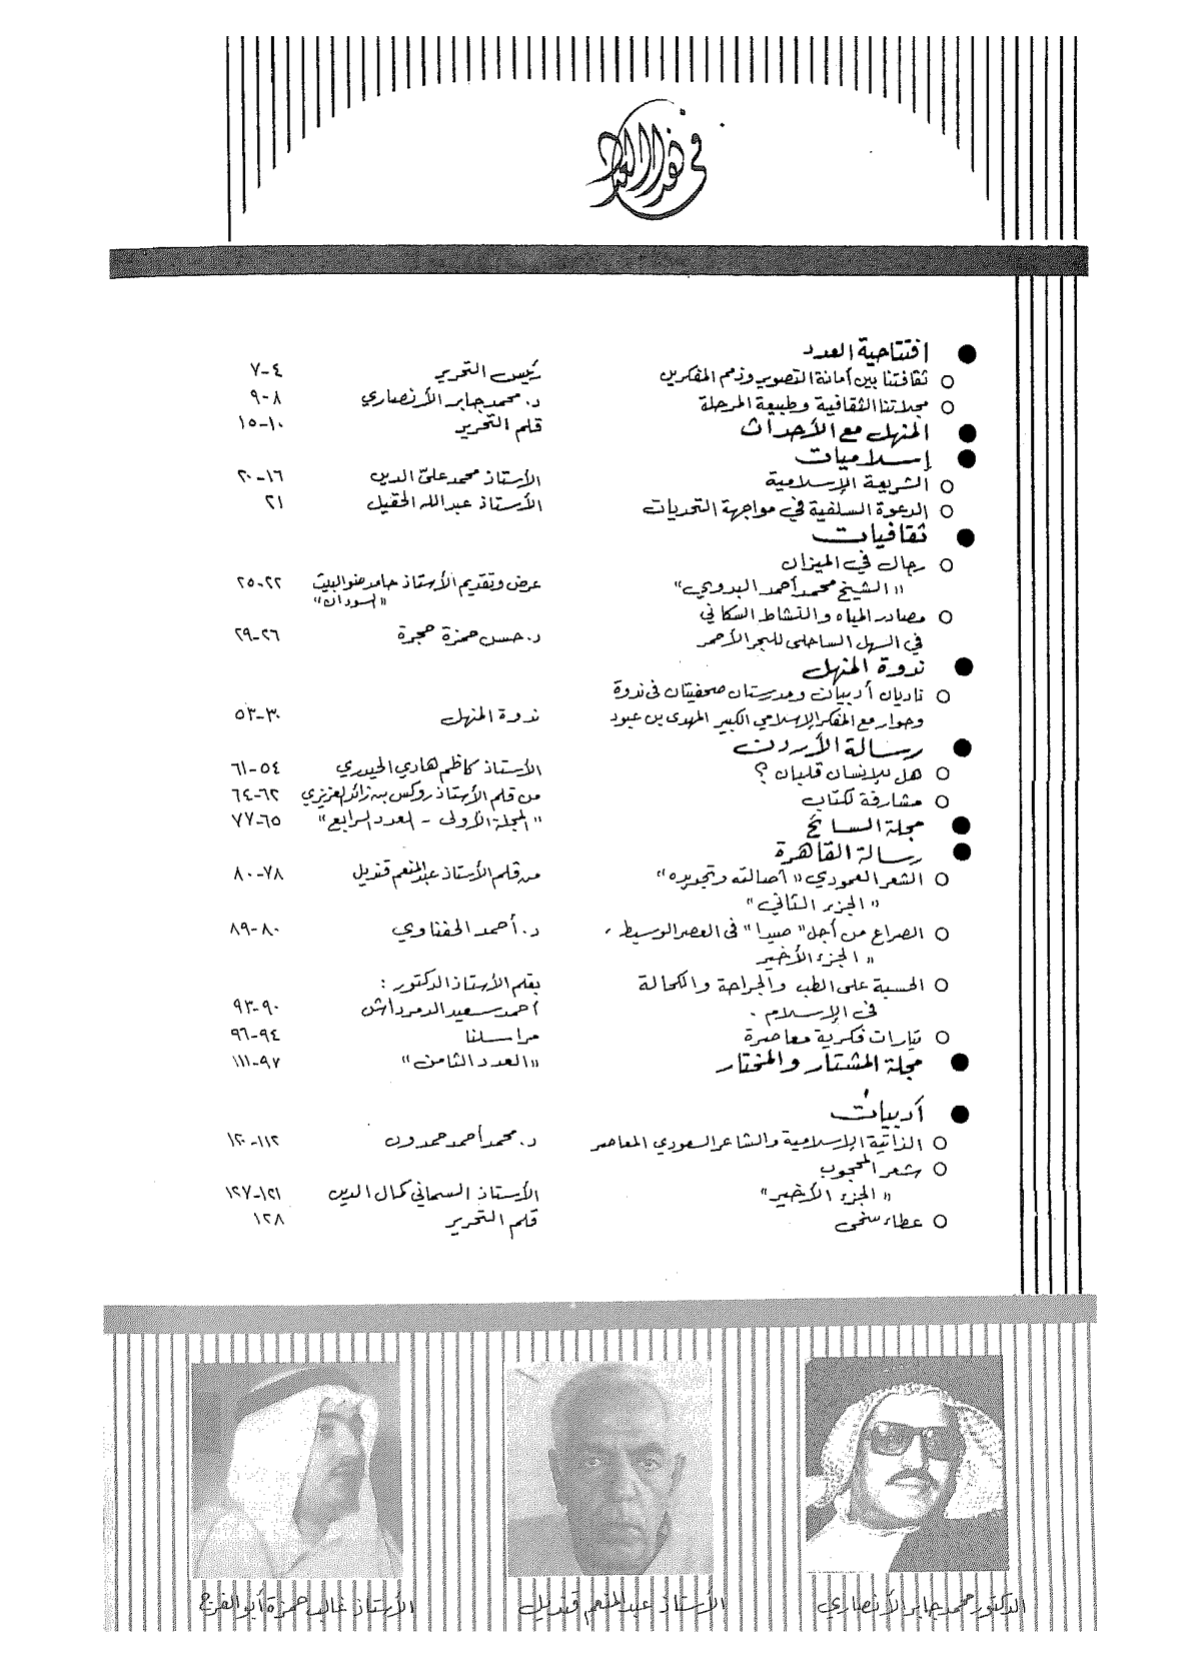 في هذا العدد
● افتتاحية العدد
○ ثقافتنا بين أمانة التصوير وذمم المفكرين رئيس التحرير ٤-٧
○ مجلاتنا الثقافية وطبيعة المرحلة د. محمد جابر الأنصاري ٨-٩
● المنهل مع الأحداث قلم التحرير ١٠-١٥
● إسلاميات
○ الشريعة الإسلامية الأستاذ محمد علىّ الدين ١٦-٢٠
○ الدعوة السلفية في مواجهة التحديات الأستاذ عبد الله الحقيل ٢١
● ثقافيات
○ رجال في الميزان
« الشيخ محمد أحمد البدوي » عرض وتقديم الأستاذ حامد ضو البيت ٢٢-٢٥
« السودان »
○ مصادر المياه والنشاط السكاني
في السهل الساحلى للبحر الأحمر د. حسن حمزة حجرة ٢٦-٢٩
● ندوة المنهل
○ ناديان أدبيان ومدرستان صحفيتان في ندوة
وحوار مع المفكر الإسلامي الكبير المهدى بن عبود ندوة المنهل ٣٠-٥٣
● رسالة الأردن
○ هل للإنسان قلبان ؟ الأستاذ كاظم هادي الحيدري ٥٤-٦١
○ مشارفة لكتاب من قلم الأستاذ روكس بن زائد العزيزي ٦٢-٦٤
● مجلة السائح « المجلة الأولى - العدد الرابع » ٦٥-٧٧
● رسالة القاهرة
○ الشعر العمودي « أصالته وتجديده » من قلم الأستاذ عبد المنعم قنديل ٧٨-٨٠
« الجزء الثاني »
○ الصراع من أجل " صيدا " في العصر الوسيط ، د. أحمد الحفناوي ٨٠-٨٩
« الجزء الأخير
○ الحسبة على الطب والجراحة والكحالة بقلم الأستاذ الدكتور :
في الإسلام . أحمد سعيد الدمرداش ٩٠-٩٣
○ تيارات فكرية معاصرة مراسلنا ٩٤-٩٦
● مجلة المشتار والمختار « العدد الثامن » ٩٧-١١١
● أدبيات
○ الذاتية الإسلامية والشاعر السعودي المعاصر د. محمد أحمد حمدون ١١٢-١٢٠
○ شعر المحجوب
« الجزء الأخير » الأستاذ السماني كمال الدين ١٢١-١٢٧
○ عطاء سخى قلم التحرير ١٢٨
الدكتور محمد جابر الأنصاري
الأستاذ عبد المنعم قنديل
الأستاذ خالد حمزة أبو الفرج